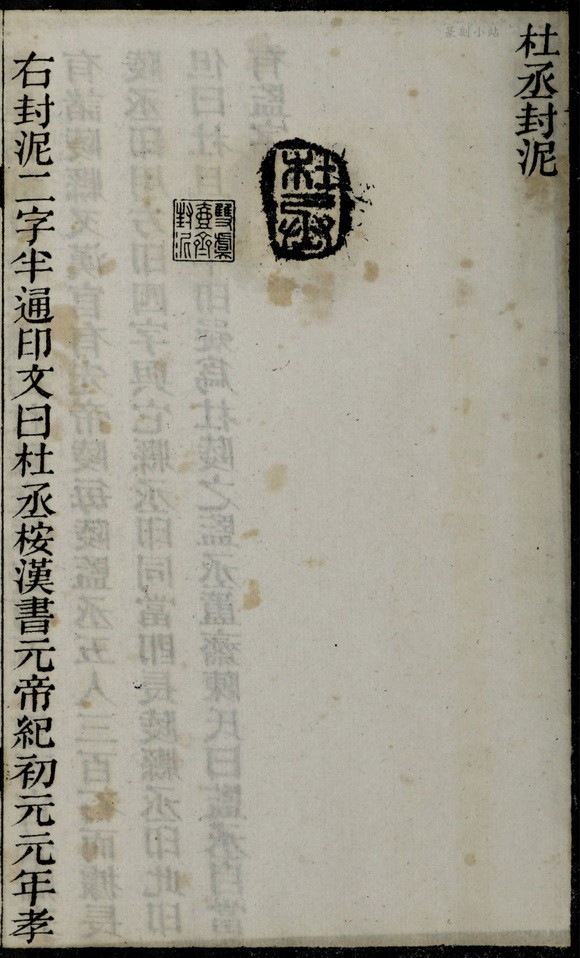 杜丞封泥
篆刻小站
杜丞
雙虞
壺齋
封泥
右封泥二字半通印文曰杜丞桉漢書元帝紀初元元年孝